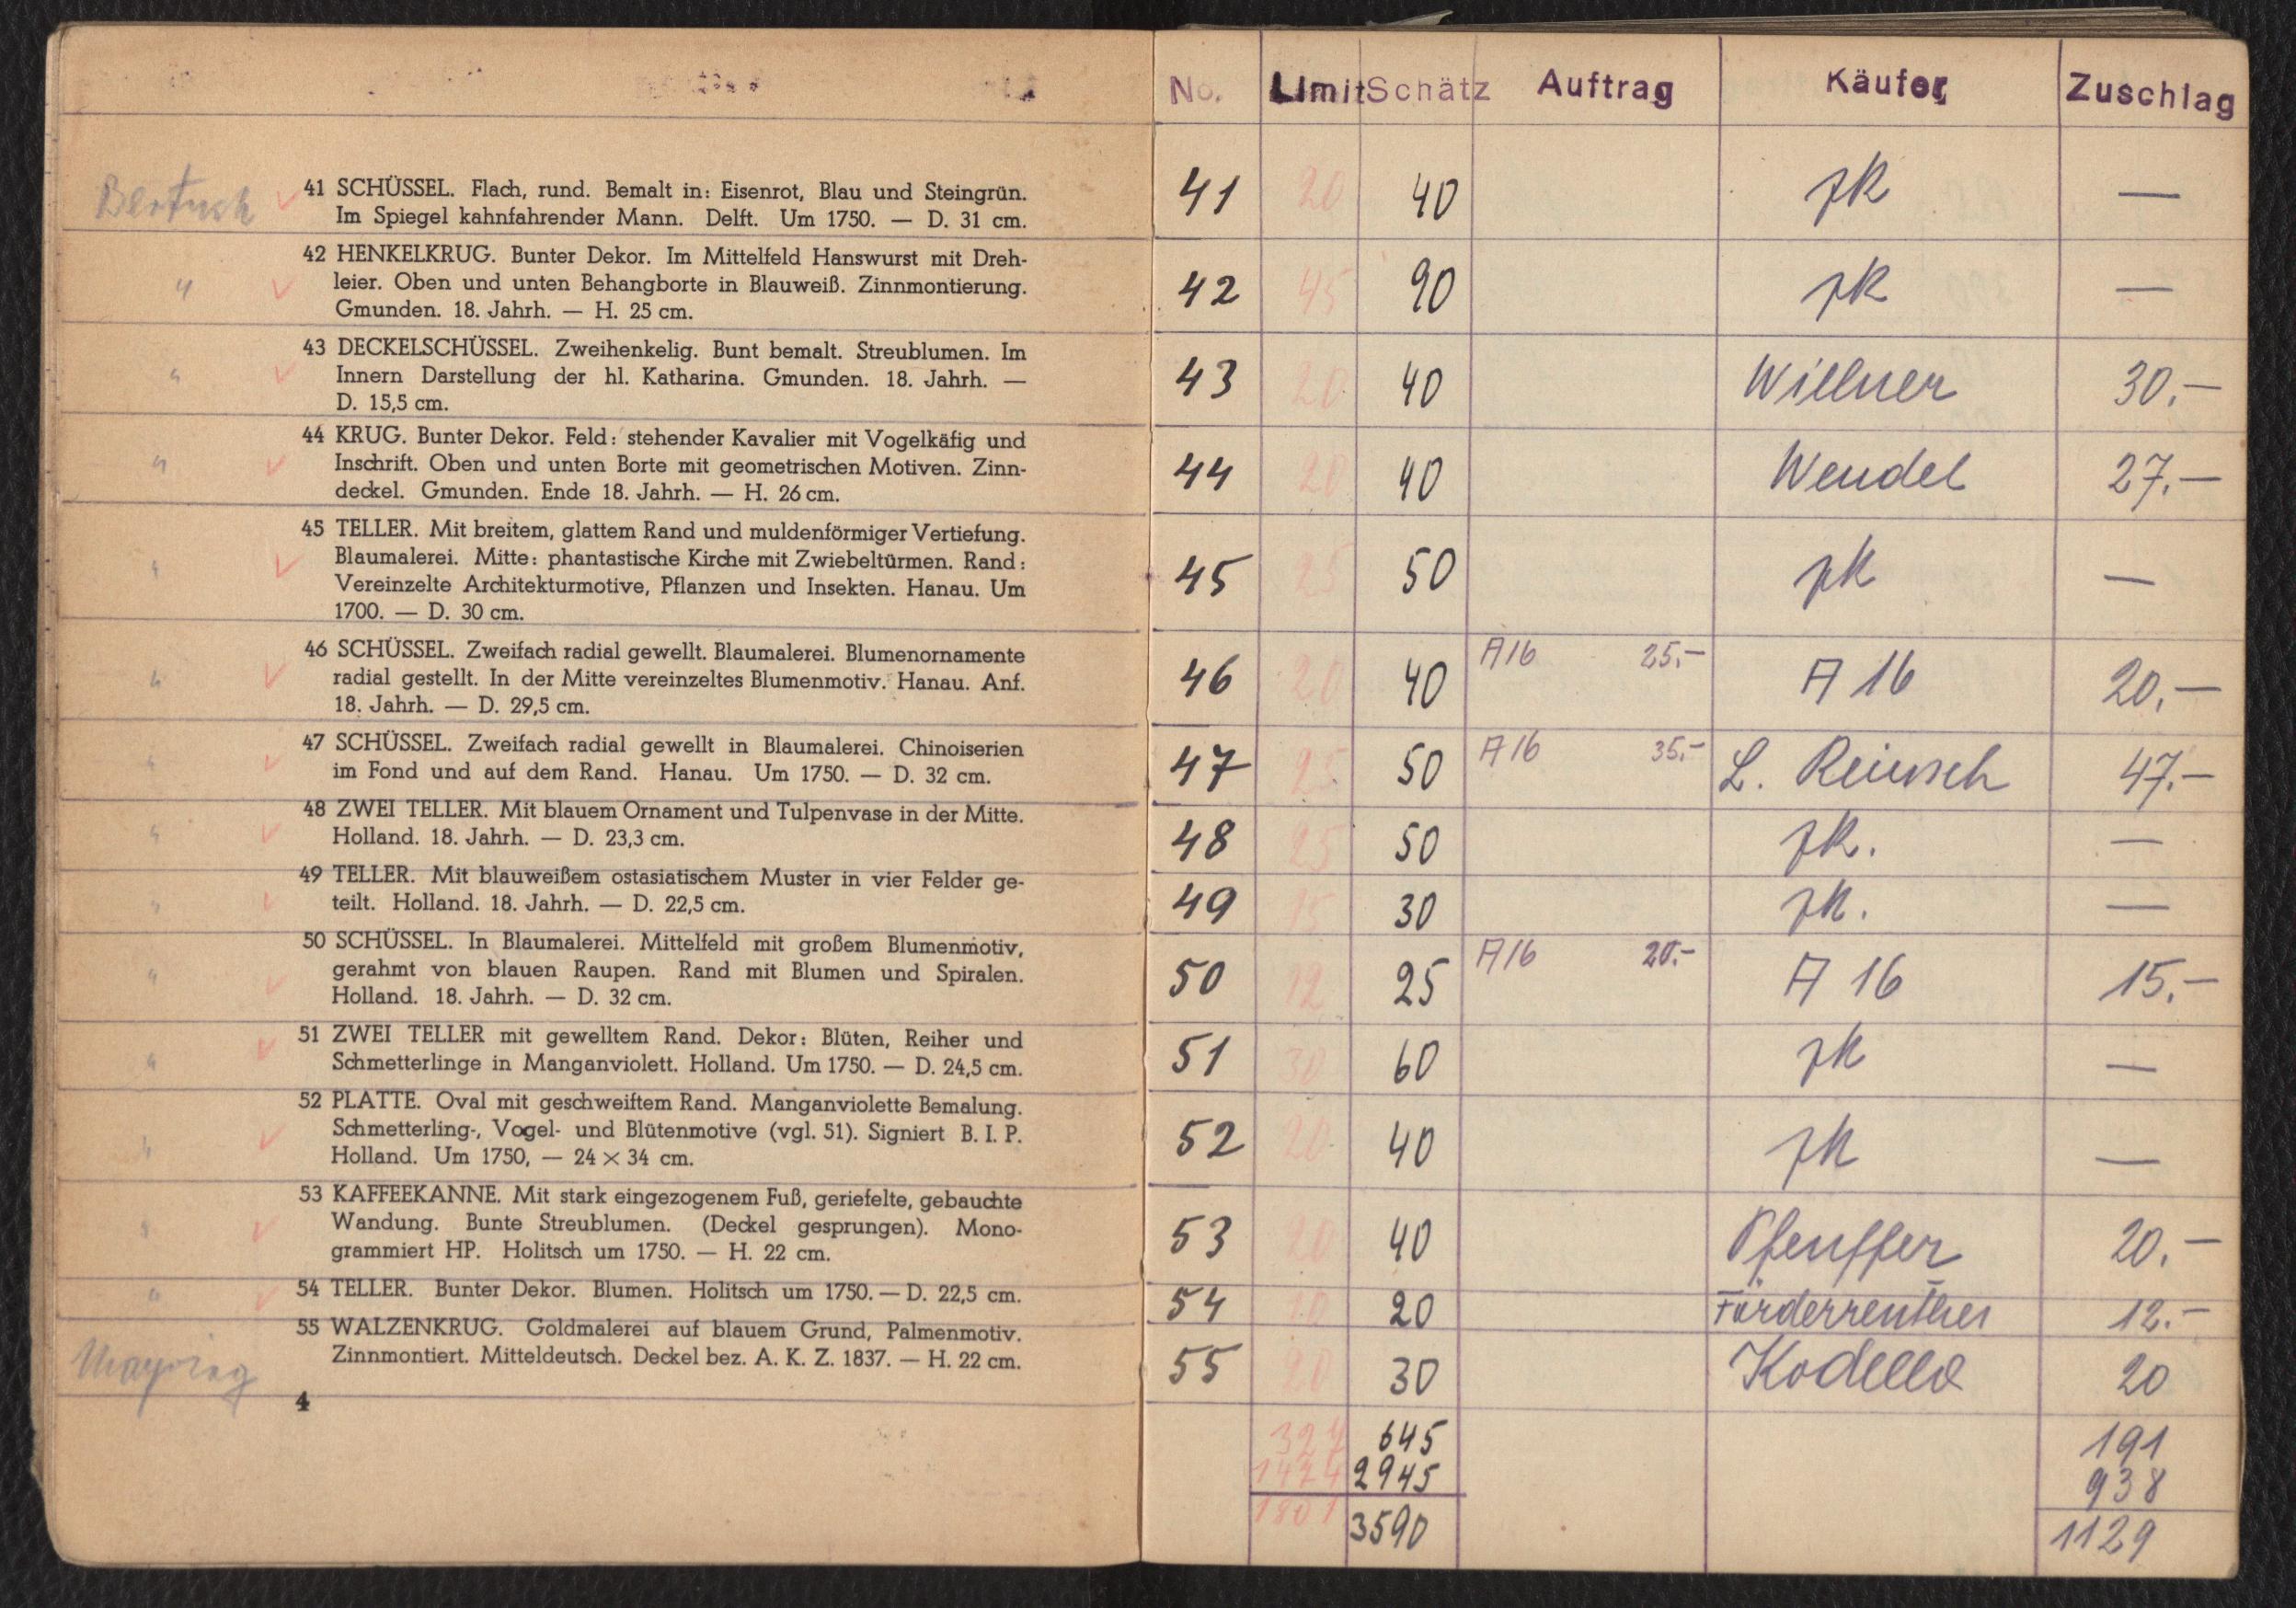 41 SCHÜSSEL. Flach, rund. Bemalt in: Eisenrot, Blau und Steingrün.
Im Spiegel kahnfahrender Mann. Delft. Um 1750. — D. 31 cm.
" 42 HENKELKRUG. Bunter Dekor. Im Mittelfeld Hanswurst mit Dreh-
leier. Oben und unten Behangborte in Blauweiß. Zinnmontierung.
Gmunden. 18. Jahrh. — H. 25 cm.
" 43 DECKELSCHÜSSEL. Zweihenkelig. Bunt bemalt. Streublumen. Im
Innern Darstellung der hl. Katharina. Gmunden. 18. Jahrh. —
D. 15,5 cm.
" 44 KRUG. Bunter Dekor. Feld: stehender Kavalier mit Vogelkäfig und
Inschrift. Oben und unten Borte mit geometrischen Motiven. Zinn-
deckel. Gmunden. Ende 18. Jahrh. — H. 26 cm.
" 45 TELLER. Mit breitem, glattem Rand und muldenförmiger Vertiefung.
Blaumalerei. Mitte: phantastische Kirche mit Zwiebeltürmen. Rand:
Vereinzelte Architekturmotive, Pflanzen und Insekten. Hanau. Um
1700. — D. 30 cm.
" 46 SCHÜSSEL. Zweifach radial gewellt. Blaumalerei. Blumenornamente
radial gestellt. In der Mitte vereinzeltes Blumenmotiv. Hanau. Anf.
18. Jahrh. — D. 29,5 cm.
" 47 SCHÜSSEL. Zweifach radial gewellt in Blaumalerei. Chinoiserien
im Fond und auf dem Rand. Hanau. Um 1750. — D. 32 cm.
" 48 ZWEI TELLER. Mit blauem Ornament und Tulpenvase in der Mitte.
Holland. 18. Jahrh. — D. 23,3 cm.
" 49 TELLER. Mit blauweißem ostasiatischem Muster in vier Felder ge-
teilt. Holland. 18. Jahrh. — D. 22,5 cm.
" 50 SCHÜSSEL. In Blaumalerei. Mittelfeld mit großem Blumenmotiv,
gerahmt von blauen Raupen. Rand mit Blumen und Spiralen.
Holland. 18. Jahrh. — D. 32 cm.
" 51 ZWEI TELLER mit gewelltem Rand. Dekor: Blüten, Reiher und
Schmetterlinge in Manganviolett. Holland. Um 1750. — D. 24,5 cm.
" 52 PLATTE. Oval mit geschweiftem Rand. Manganviolette Bemalung.
Schmetterling-, Vogel- und Blütenmotive (vgl. 51). Signiert B. I. P.
Holland. Um 1750, — 24 × 34 cm.
" 53 KAFFEEKANNE. Mit stark eingezogenem Fuß, geriefelte, gebauchte
Wandung. Bunte Streublumen. (Deckel gesprungen). Mono-
grammiert HP. Holitsch um 1750. — H. 22 cm.
" 54 TELLER. Bunter Dekor. Blumen. Holitsch um 1750. — D. 22,5 cm.
55 WALZENKRUG. Goldmalerei auf blauem Grund, Palmenmotiv.
Zinnmontiert. Mitteldeutsch. Deckel bez. A. K. Z. 1837. — H. 22 cm.
4
No. Limit Schätz Auftrag Käufer Zuschlag
41 20 40 zk —
42 45 90 zk —
43 20 40 Willner 30.—
44 20 40 Wendel 27.—
45 25 50 zk —
46 20 40 A16 25.— A 16 20.—
47 25 50 A16 35.— L. Reinsch 47.—
48 25 50 zk. —
49 15 30 zk. —
50 12 25 A16 20.— A 16 15.—
51 30 60 zk —
52 20 40 zk —
53 20 40 Pfeuffer 20.—
54 10 20 12.—
55 20 30 Kodella 20
327 645 191
1474 2945 938
1801 3590 1129